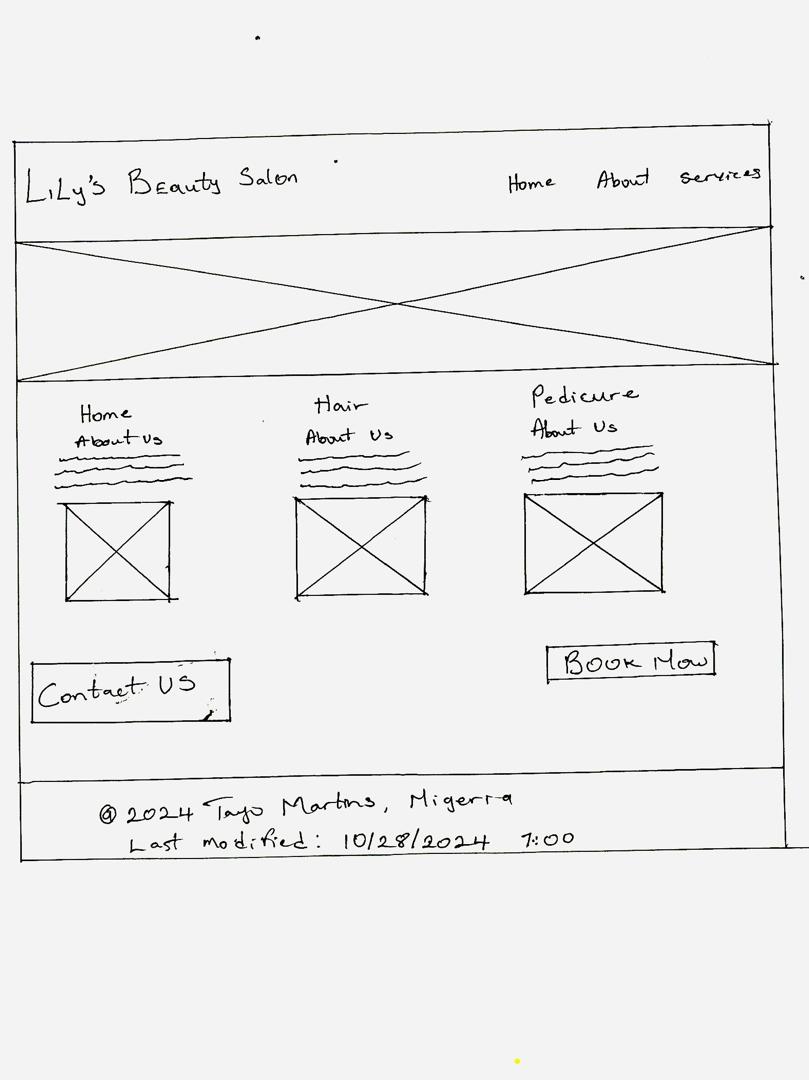 LiLy's Beauty Salon
Home About services
Home
About Us
Hair
About Us
Pedicure
About Us
Contact US
Book Now
© 2024 Tayo Martins, Nigerra
Last modified: 10/28/2024 7:00